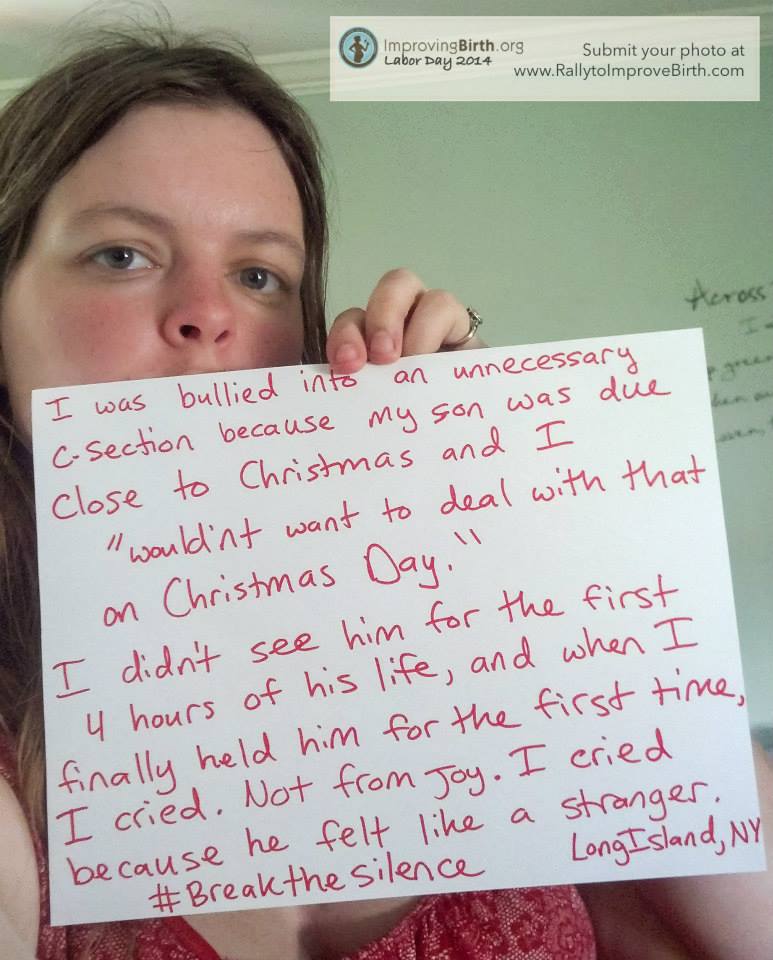 ImprovingBirth.org
Labor Day 2014
Submit your photo at
www.RallytoImproveBirth.com
Across
I
green
I was bullied into an unnecessary
c-section because my son was due
close to Christmas and I
"would'nt want to deal with that
on Christmas Day."
I didn't see him for the first
4 hours of his life, and when I
finally held him for the first time,
I cried. Not from joy. I cried
because he felt like a stranger.
#BreaktheSilence LongIsland, NY